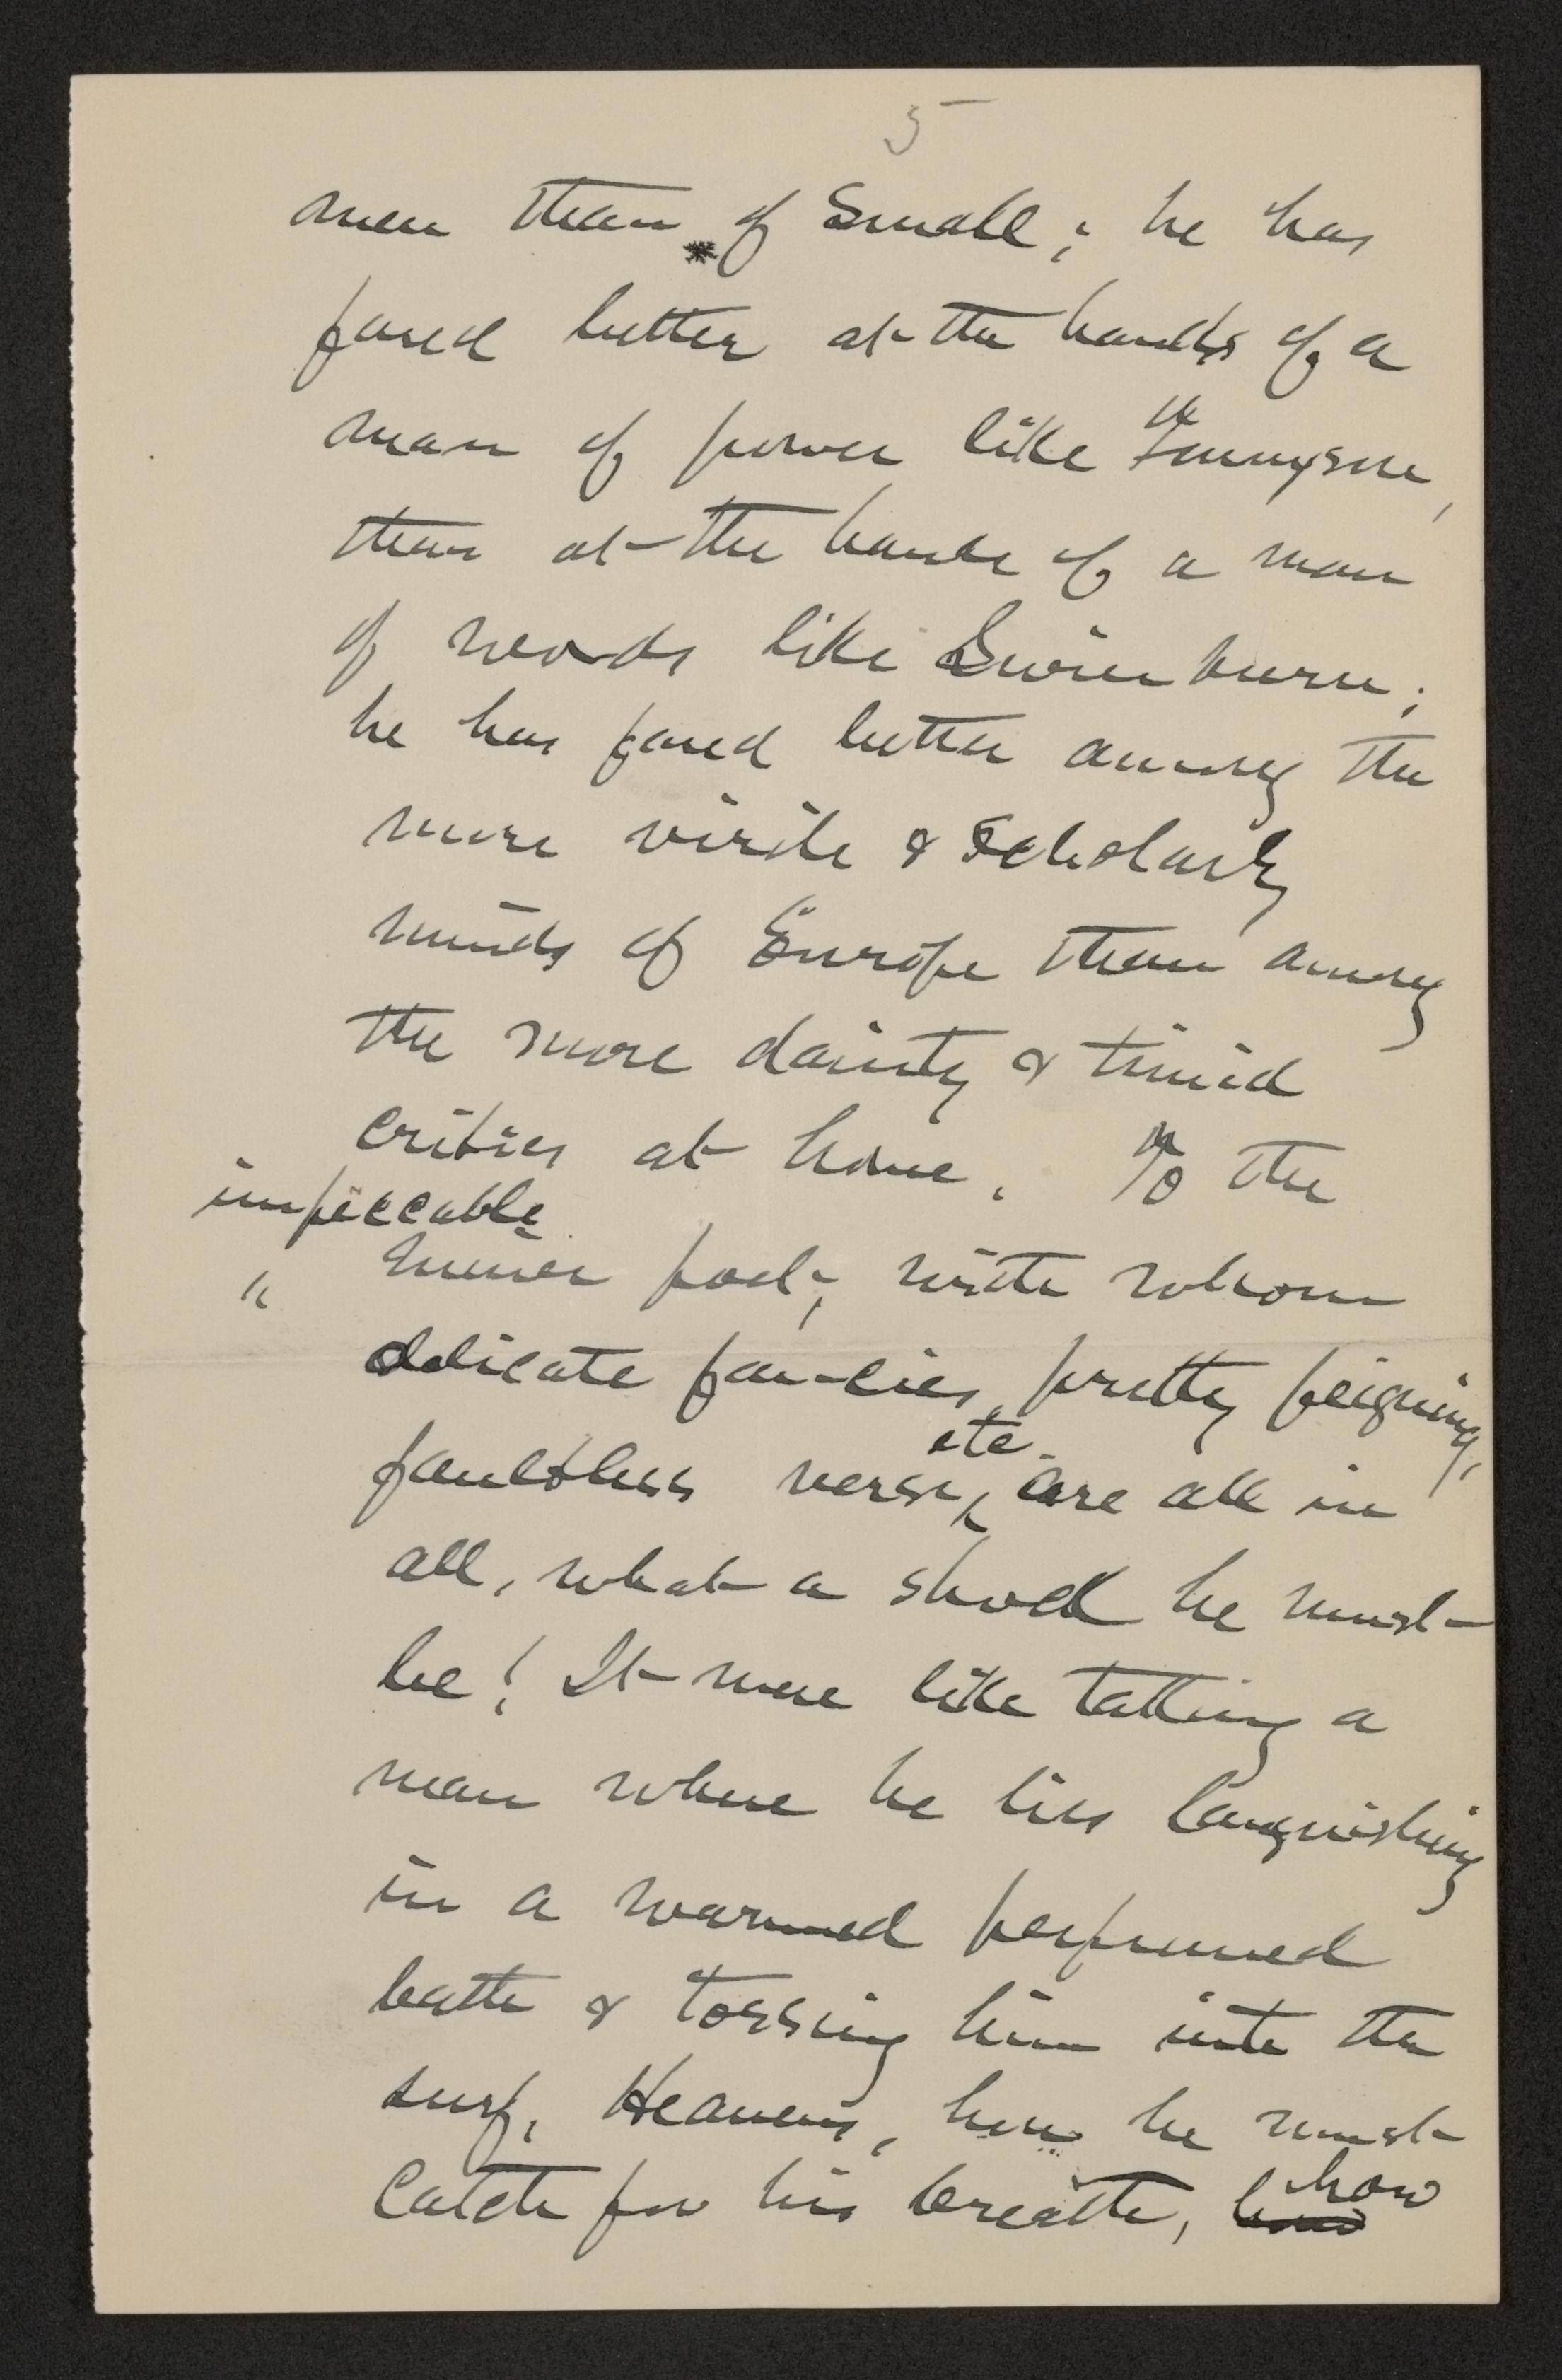 5
men than of small; he has
fared better at the hands of a
man of power like Tennyson,
than at the hands of a man
of words like Swinburne;
he has fared better among the
more virile & scholarly
minds of Europe than among
the more dainty & timid
critics at home. To the
impeccable
" minor poet, with whom
delicate fancies, pretty feigning,
etc.
faultless verse, are all in
all, what a shock he must
be! It were like taking a
man where he lies languishing
in a warmed perfumed
bath & tossing him into the
surf. Heavens, how he must
how
catch for his breath,